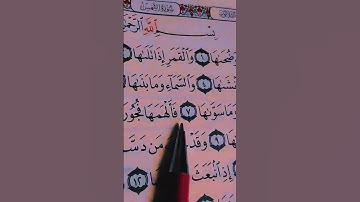 سُورَةُ الشَّمْسِ
بِسْمِ اللَّهِ الرَّحْمَ
وَضُحَىٰهَا ١ وَالْقَمَرِ إِذَا تَلَىٰهَا
٤ وَالسَّمَاءِ وَمَا بَنَىٰهَا
وَمَا سَوَّىٰهَا ٧ فَأَلْهَمَهَا فُجُورَ
٩ وَقَدْ مَن دَسَّ
إِذِ انۢبَعَثَ ١٢